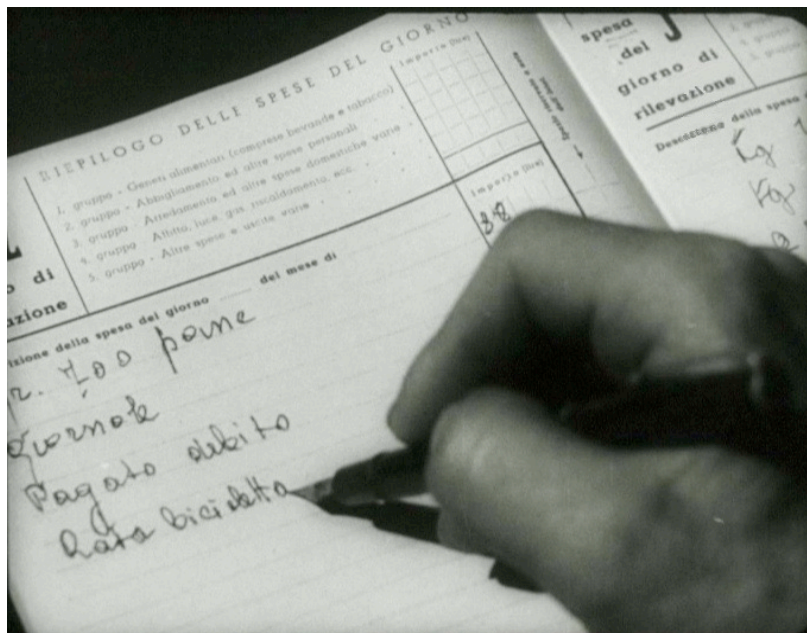 RIEPILOGO DELLE SPESE DEL GIORNO
Importo (lire)
1. gruppo - Generi alimentari (comprese bevande e tabacco)
2. gruppo - Abbigliamento ed altre spese personali
3. gruppo - Arredamento ed altre spese domestiche varie
4. gruppo - Affitto, luce, gas, riscaldamento, ecc.
5. gruppo - Altre spese e uscite varie
di
azione
izione della spesa del giorno del mese di
Importo (lire)
88
gr. 700 pane
giornale
Pagato debito
Rata bicicletta
spesa
del
giorno di
rilevazione
Descrizione della spesa
Kg
Kg